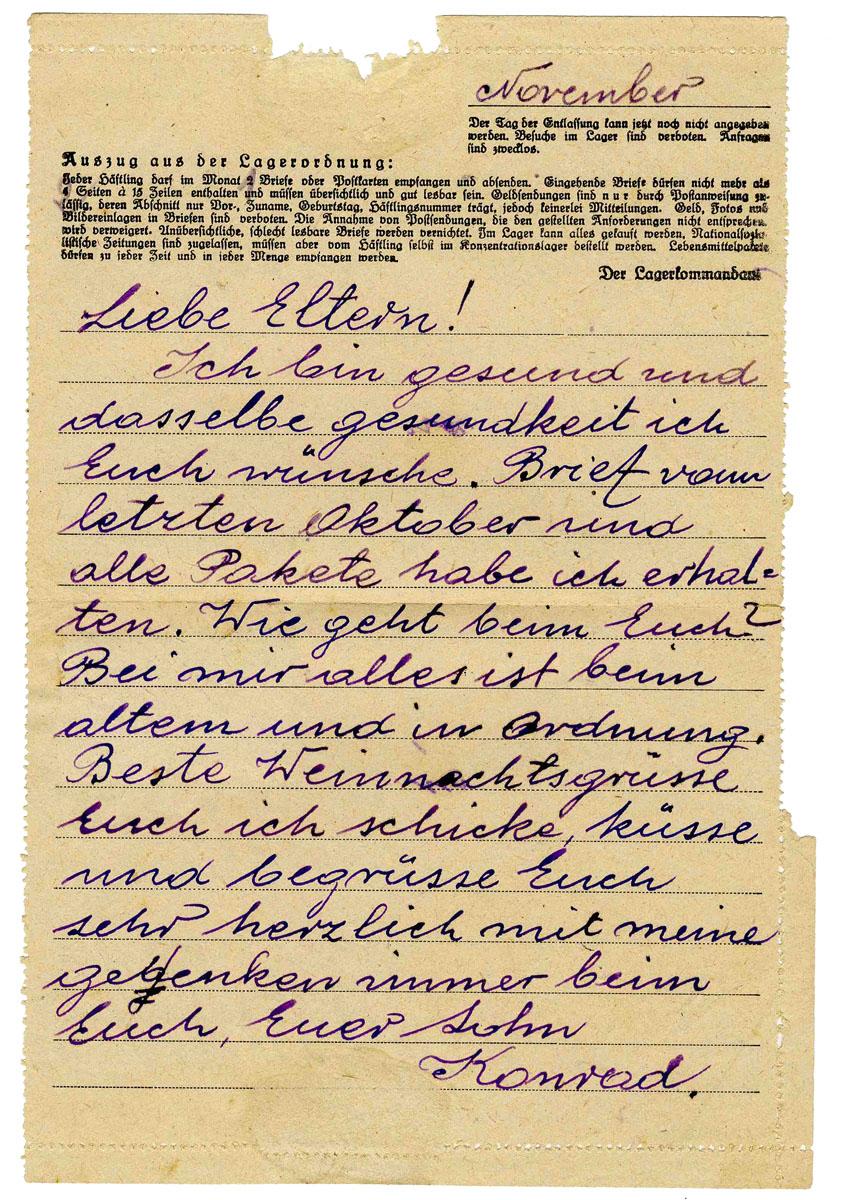 November
Der Tag der Entlassung kann jetzt noch nicht angegeben
werden. Besuche im Lager sind verboten. Anfragen
sind zwecklos.
Auszug aus der Lagerordnung:
Jeder Häftling darf im Monat 2 Briefe oder Postkarten empfangen und absenden. Eingehende Briefe dürfen nicht mehr als
4 Seiten à 15 Zeilen enthalten und müssen übersichtlich und gut lesbar sein. Geldsendungen sind nur durch Postanweisung zu-
lässig, deren Abschnitt nur Vor-, Zuname, Geburtstag, Häftlingsnummer trägt, jedoch keinerlei Mitteilungen. Geld, Fotos und
Bildereinlagen in Briefen sind verboten. Die Annahme von Postsendungen, die den gestellten Anforderungen nicht entsprechen,
wird verweigert. Unübersichtliche, schlecht lesbare Briefe werden vernichtet. Im Lager kann alles gekauft werden. Nationalsozia-
listische Zeitungen sind zugelassen, müssen aber vom Häftling selbst im Konzentrationslager bestellt werden. Lebensmittelpakete
dürfen zu jeder Zeit und in jeder Menge empfangen werden.
Der Lagerkommandant
Liebe Eltern!
Ich bin gesund und
dasselbe gesundkeit ich
Euch wünsche. Brief vom
letzten Oktober und
alle Pakete habe ich erhal=
ten. Wie geht beim Euch?
Bei mir alles ist beim
altem und in Ordnung.
Beste Weinnachtsgrüsse
Euch ich schicke, küsse
und begrüsse Euch
sehr herzlich mit meine
gedenken immer beim
Euch, Euer Sohn
Konrad.